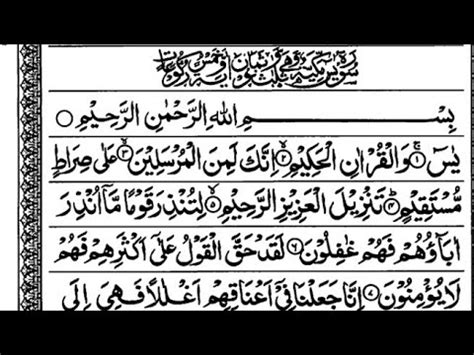 سورة يس مكية وهي ثلث وثمانون آية وخمس ركوعات
بِسْمِ اللهِ الرَّحْمٰنِ الرَّحِيْمِ
يٰسٓ ۚ وَالْقُرْاٰنِ الْحَكِيْمِ ۙ اِنَّكَ لَمِنَ الْمُرْسَلِيْنَ ۙ عَلٰى صِرَاطٍ
مُّسْتَقِيْمٍ ؕ تَنْزِيْلَ الْعَزِيْزِ الرَّحِيْمِ ۙ لِتُنْذِرَ قَوْمًا مَّآ اُنْذِرَ
اٰبَآؤُهُمْ فَهُمْ غٰفِلُوْنَ ۶ لَقَدْ حَقَّ الْقَوْلُ عَلٰٓى اَكْثَرِهِمْ فَهُمْ
لَا يُؤْمِنُوْنَ ۷ اِنَّا جَعَلْنَا فِيْٓ اَعْنَاقِهِمْ اَغْلٰلًا فَهِيَ اِلَى